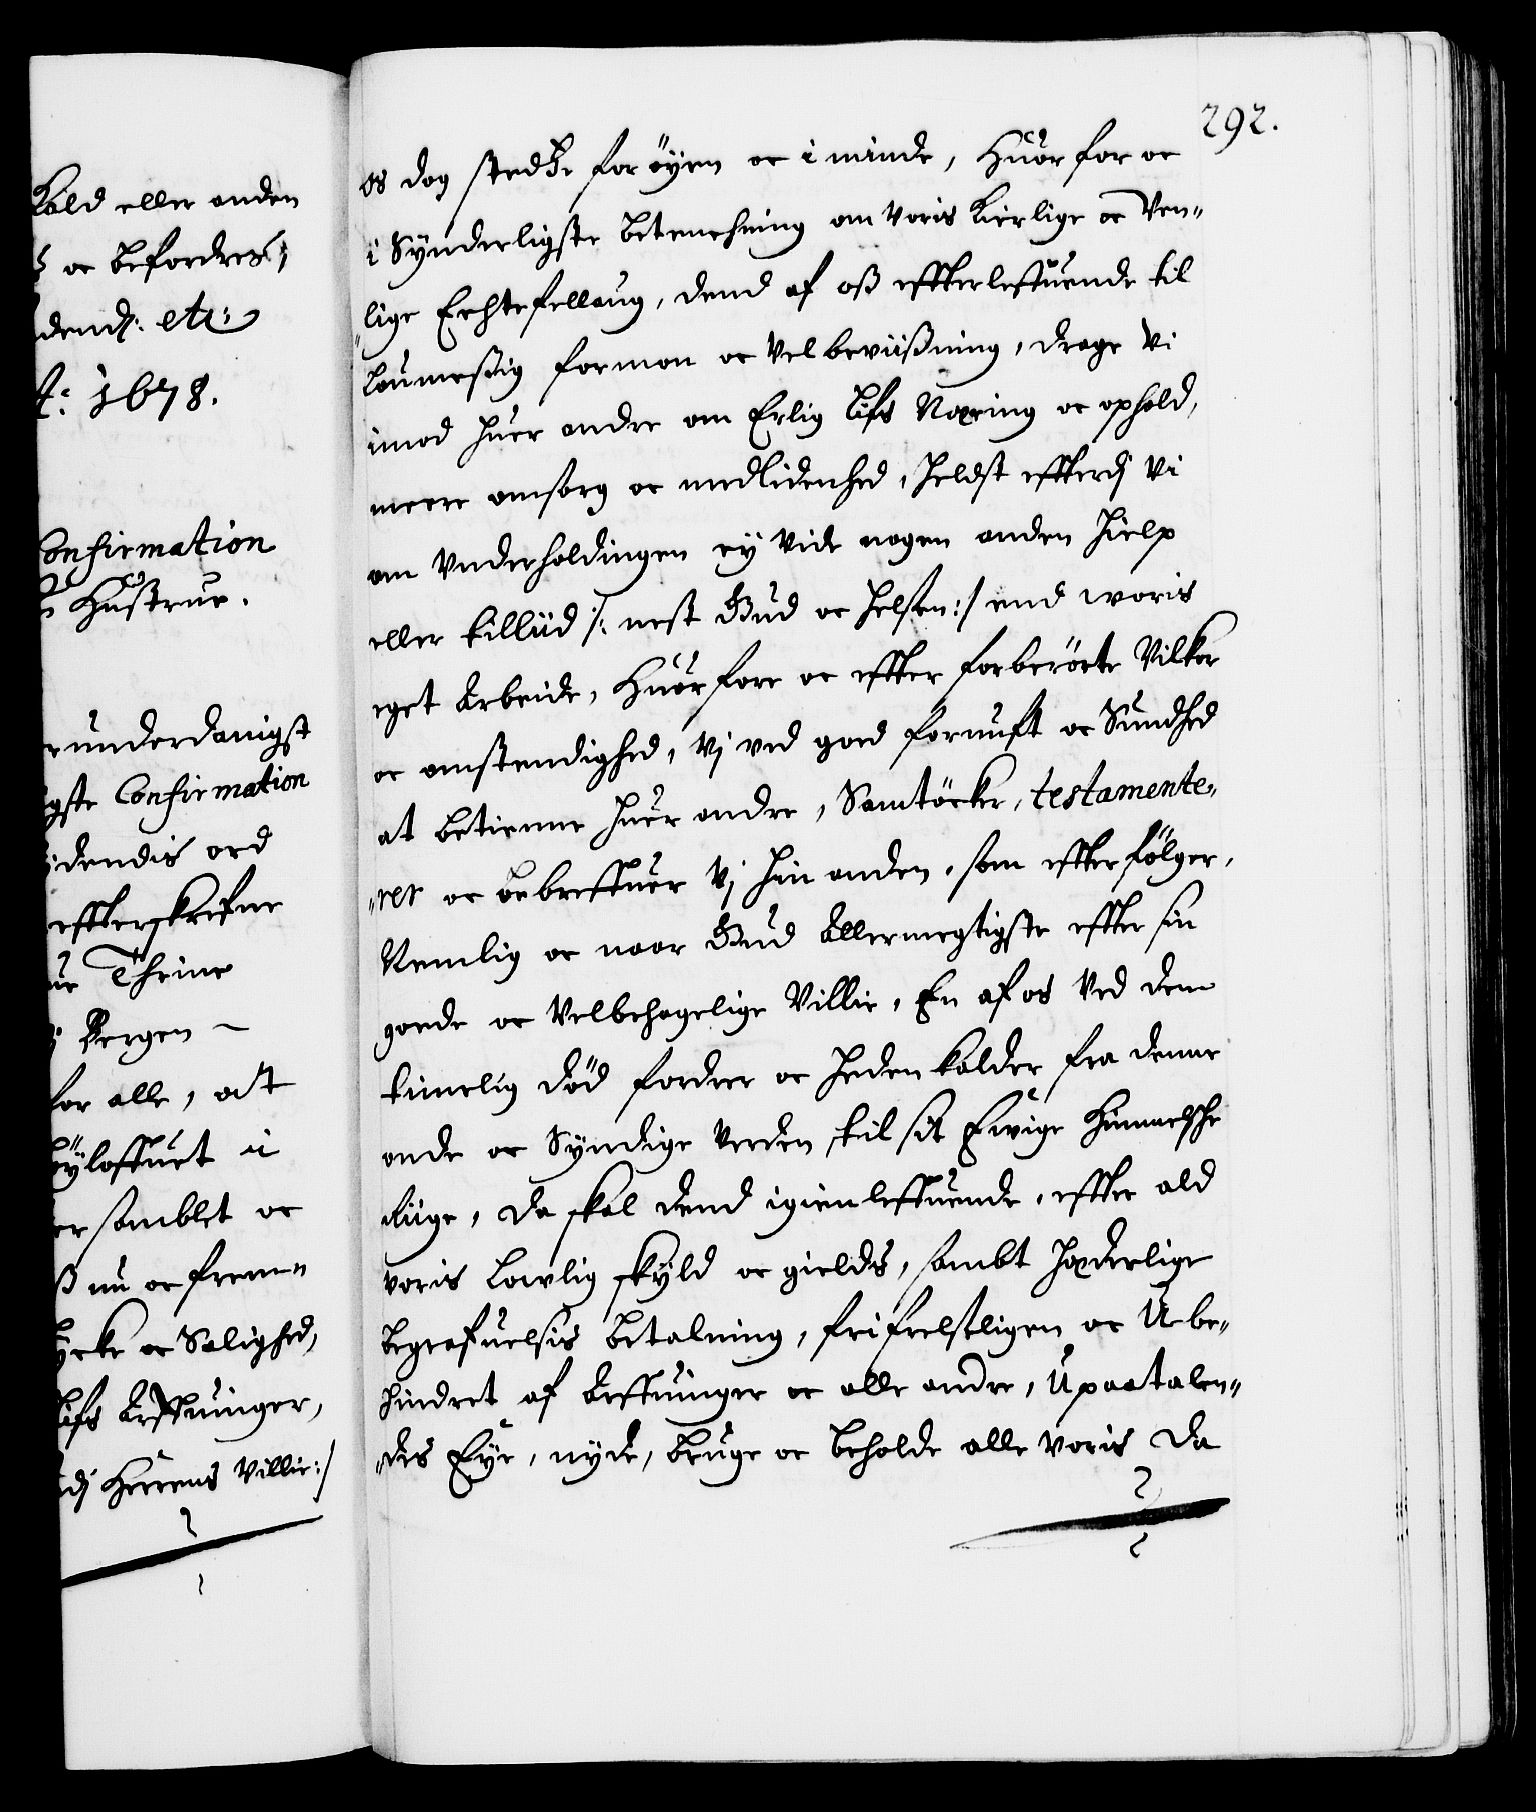 kald eller anden
oc befordres,
dend: etc:
Ao: 1678.
Confirmation
Hustrue.
underdanigst
gste Confirmation
dendis ord
effterskrefne
Thrine
Bergen ~
for alle, at
forsamblet oc
nu oc frem-
lycke oc Salighed,
lifs Arffuinger,
Herrens Villie:/
292.
os dog stedse for øyen oc i minde, Huor for oc
i Synderligste betenchning om voris kierlige oc Ven-
lige Echtefellaug, dend af oß effterleffuende til
loumeßig formon oc velbeviißning, drage Vi
imod huer andre om Erlig lifs Næring oc ophold,
meere omsorg oc medlidenhed, heldst efftterdj Vi
om Underholdingen ey vide nogen anden hielp
eller tilliid /: nest Gud oc helsen :/ end woris
eget Arbeide, Huorfore oc effter forberørte Vilkor
oc omstendighed, Vj ved goed fornuft oc Sundhed
at betienne huer andre, Samtöcker, testamente-
rer oc bebreffuer Vj hin anden, som effterfölger,
Nemlig oc naar Gud Allermegtigste effter sin
goede oc Velbehagelige Villie, En af os Ved den
timelig död fordrer oc hedenkalder fra denne
onde oc Syndige Verden til sit Ewige Himmelsche
Riige, da skal dend igienleffuende, effter ald
voris Lowlig skyld oc gields, sambt hæderlige
begrafuelsis betalning, frifrelseligen oc Ube-
hindret af Arffuinger oc alle andre, Upaatalen-
des Eye, nyde, bruge oc beholde alle voris da